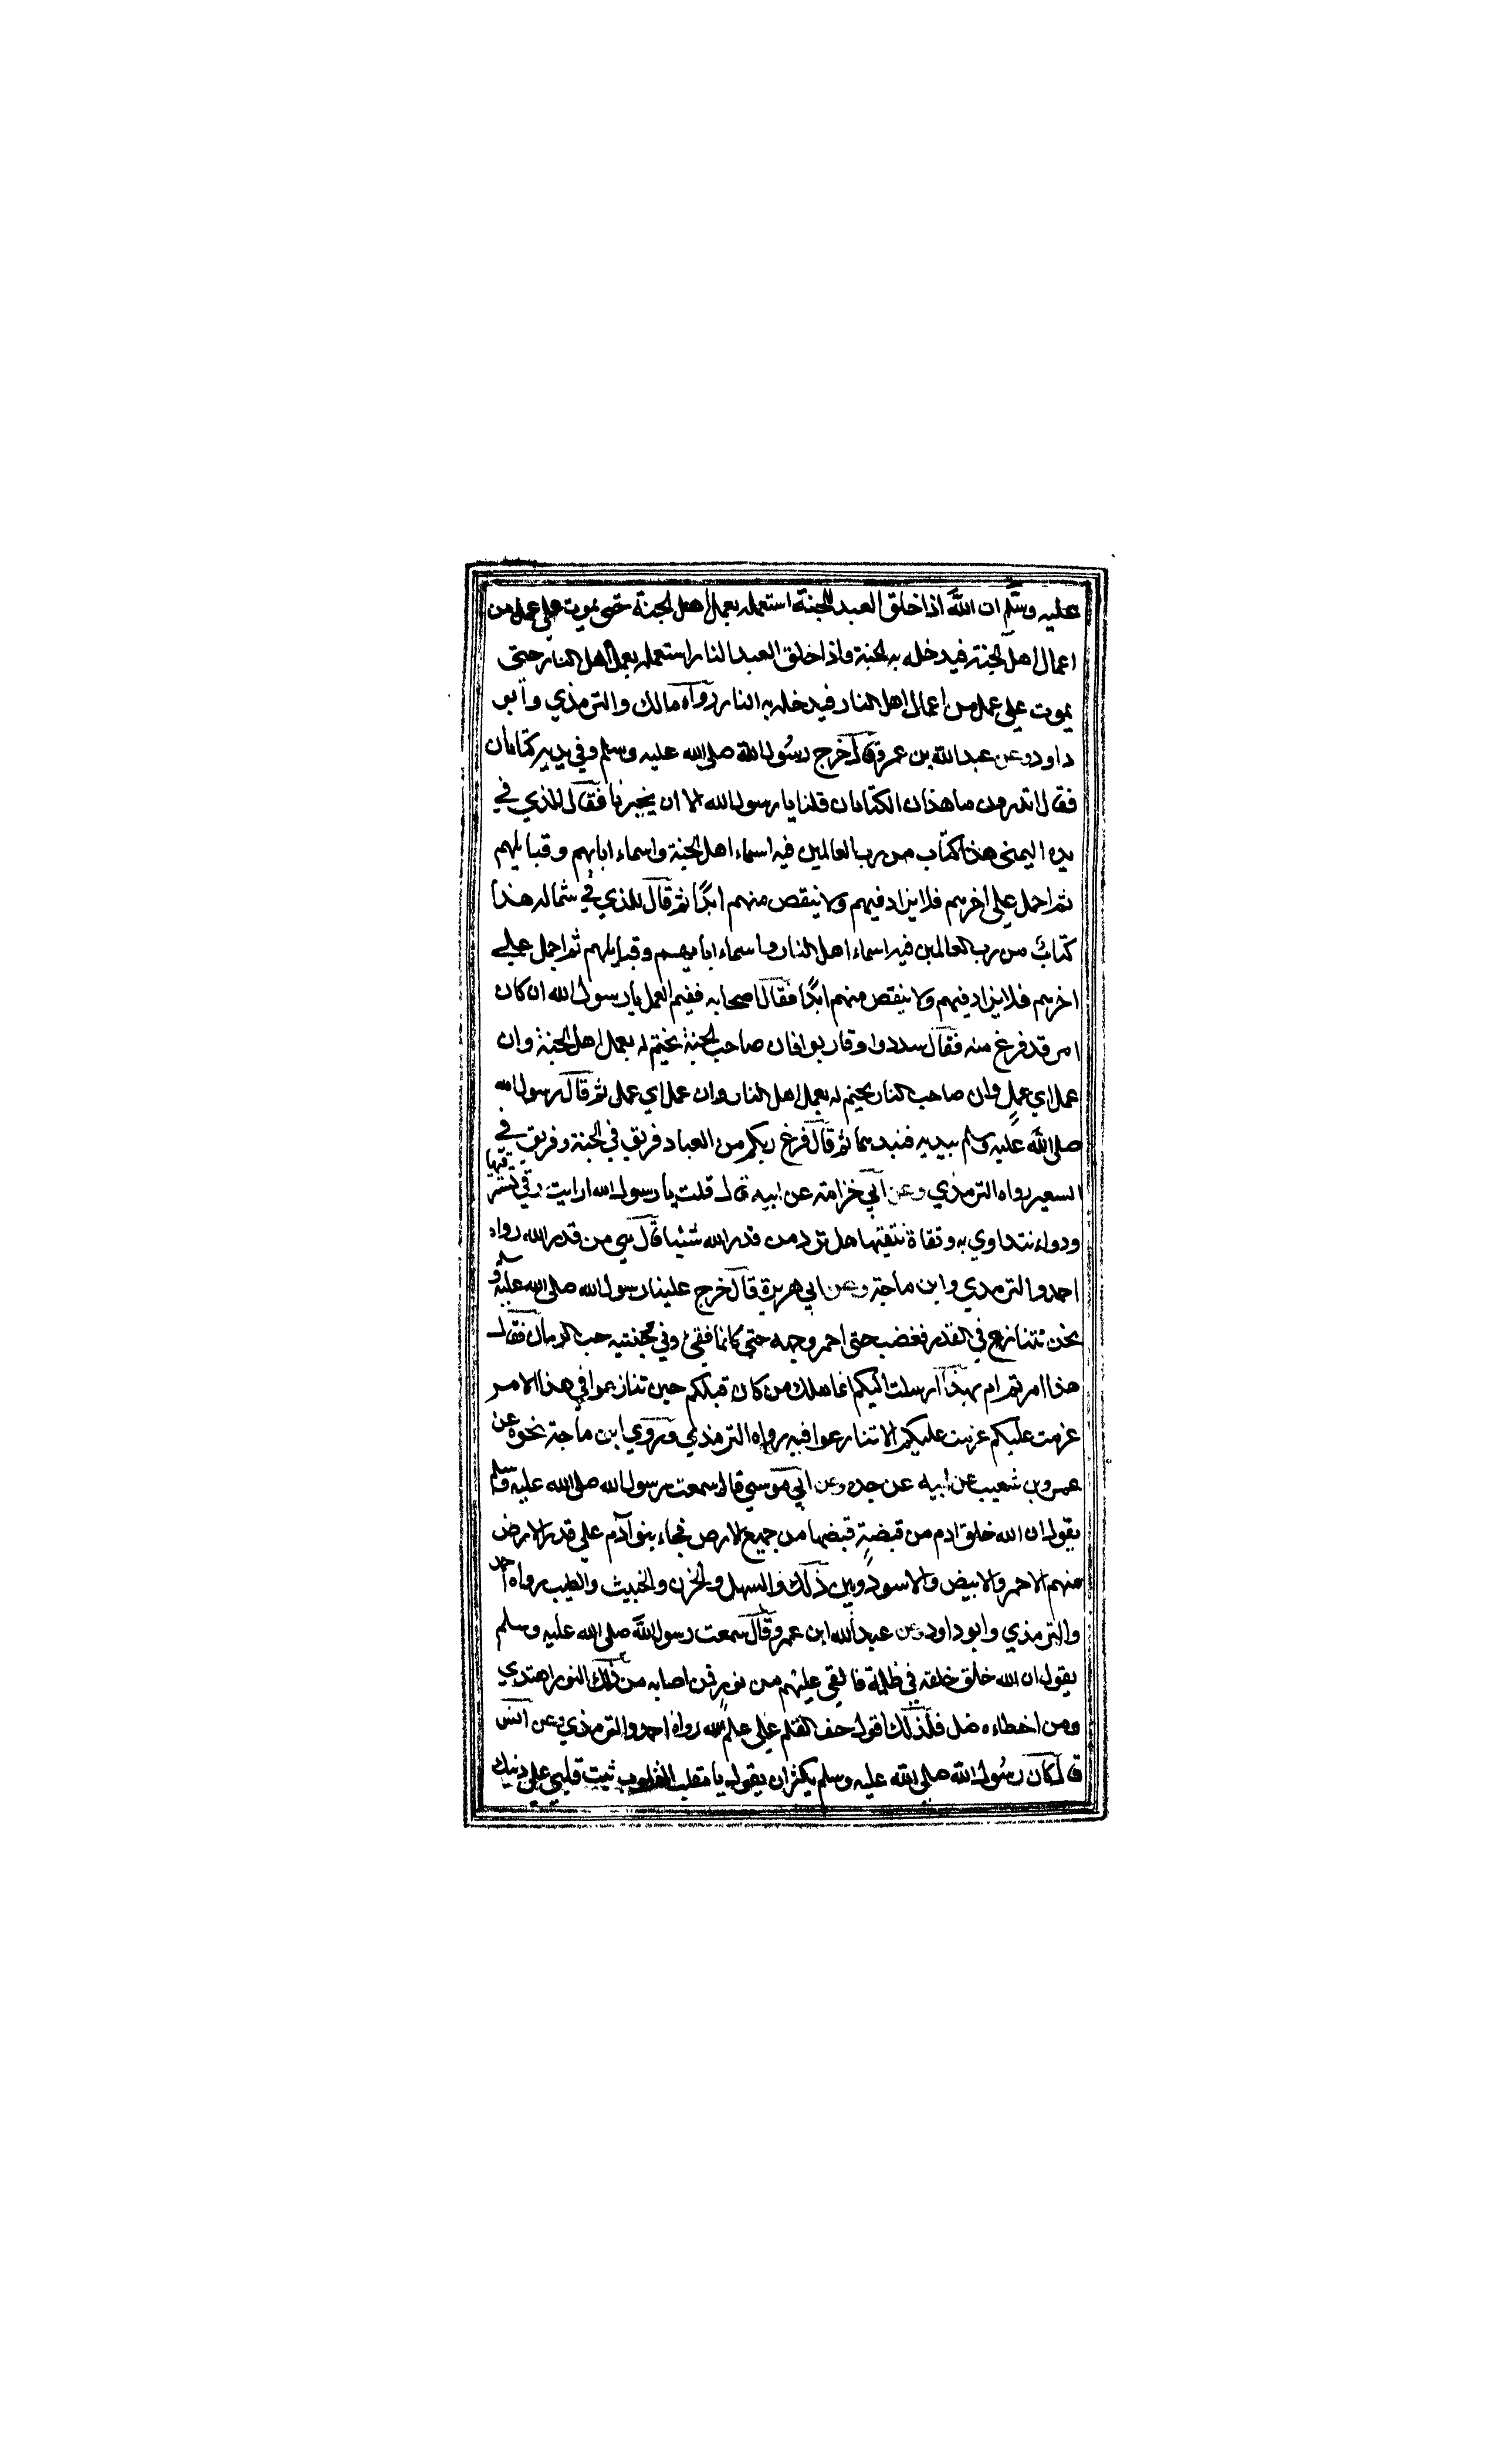 عليه وسلم ان الله اذا خلق العبد للجنة استعمله بعمل اهل الجنة حتى يموت على عمل من
اعمال اهل الجنة فيدخله به الجنة واذا خلق العبد النار استعمله بعمل اهل النار حتى
يموت علي عمل من اعمال اهل النار فيدخله به النار رواه مالك والترمذي وابو
داود وعن عبد الله بن عمرو قال خرج رسول الله صلى الله عليه وسلم وفي يديه كتابان
فقال اتدرون ما هذان الكتابان قلنا يا رسول الله الا ان يخبرنا فقال للذي في
يده اليمنى هذا كتاب من رب العالمين فيه اسماء اهل الجنة واسماء ابايهم وقبايلهم
ثم اجمل علي اخرهم فلا يزاد فيهم ولا ينقص منهم ابدًا ثم قال للذي في شماله هذا
كتاب من رب العالمين فيه اسماء اهل النار واسماء ابايهم وقبايلهم ثم اجمل علي
اخرهم فلا يزاد فيهم ولا ينقص منهم ابدًا فقال اصحابه ففيم العمل يا رسول الله ان كان
امر قد فرغ منه فقال سددوا وقاربوا فان صاحب الجنة يختم له بعمل اهل الجنة وان
عمل اي عمل وان صاحب النار يختم له بعمل اهل النار وان عمل اي عمل ثم قال رسول الله
صلى الله عليه وسلم بيديه فنبدهما ثم قال فرغ ربكم من العباد فريق في الجنة وفريق في
السعير رواه الترمذي وعن ابي خزامة عن ابيه قال قلت يا رسول الله ارايت رقي نسترقيها
ودواء نتداوي به وتقاة نتقيها هل ترد من قدر الله شيئا قال هي من قدر الله رواه
احمد والترمدي وابن ماجة وعن ابي هريرة قال خرج علينا رسول الله صلى الله عليه وسلم
نحن نتنازع في القدر فغضب حتى احمر وجهه حتي كانما فقئ في وجنتيه حب الرمان فقال
هذا امرتم ام بهذا ارسلت اليكم انما هلك من كان قبلكم حين تنازعوا في هذا الامر
عزمت عليكم عزمت عليكم الا تنازعوا فيه رواه الترمذي وروي ابن ماجة نحوه عن
عمرو بن شعيب عن ابيه عن جده وعن ابي موسي قال سمعت رسول الله صلى الله عليه وسلم
يقول ان الله خلق ادم من قبضةٍ قبضها من جميع الارض فجاء بنو آدم علي قدر الارض
منهم الاحمر والابيض والاسود وبين ذلك والسهل والحزن والخبيث والطيب رواه احمد
والترمذي وابو داود وعن عبد الله ابن عمرو قال سمعت رسول الله صلى الله عليه وسلم
يقول ان الله خلق خلقه في ظلمة فالقي عليهم من نوره فمن اصابه من ذلك النور اهتدي
ومن اخطاءه ضل فلذلك اقول جف القلم علي علم الله رواه احمد والترمذي وعن انس
قال كان رسول الله صلى الله عليه وسلم يكثر ان يقول يا مقلب القلوب ثبت قلبي علي دينك